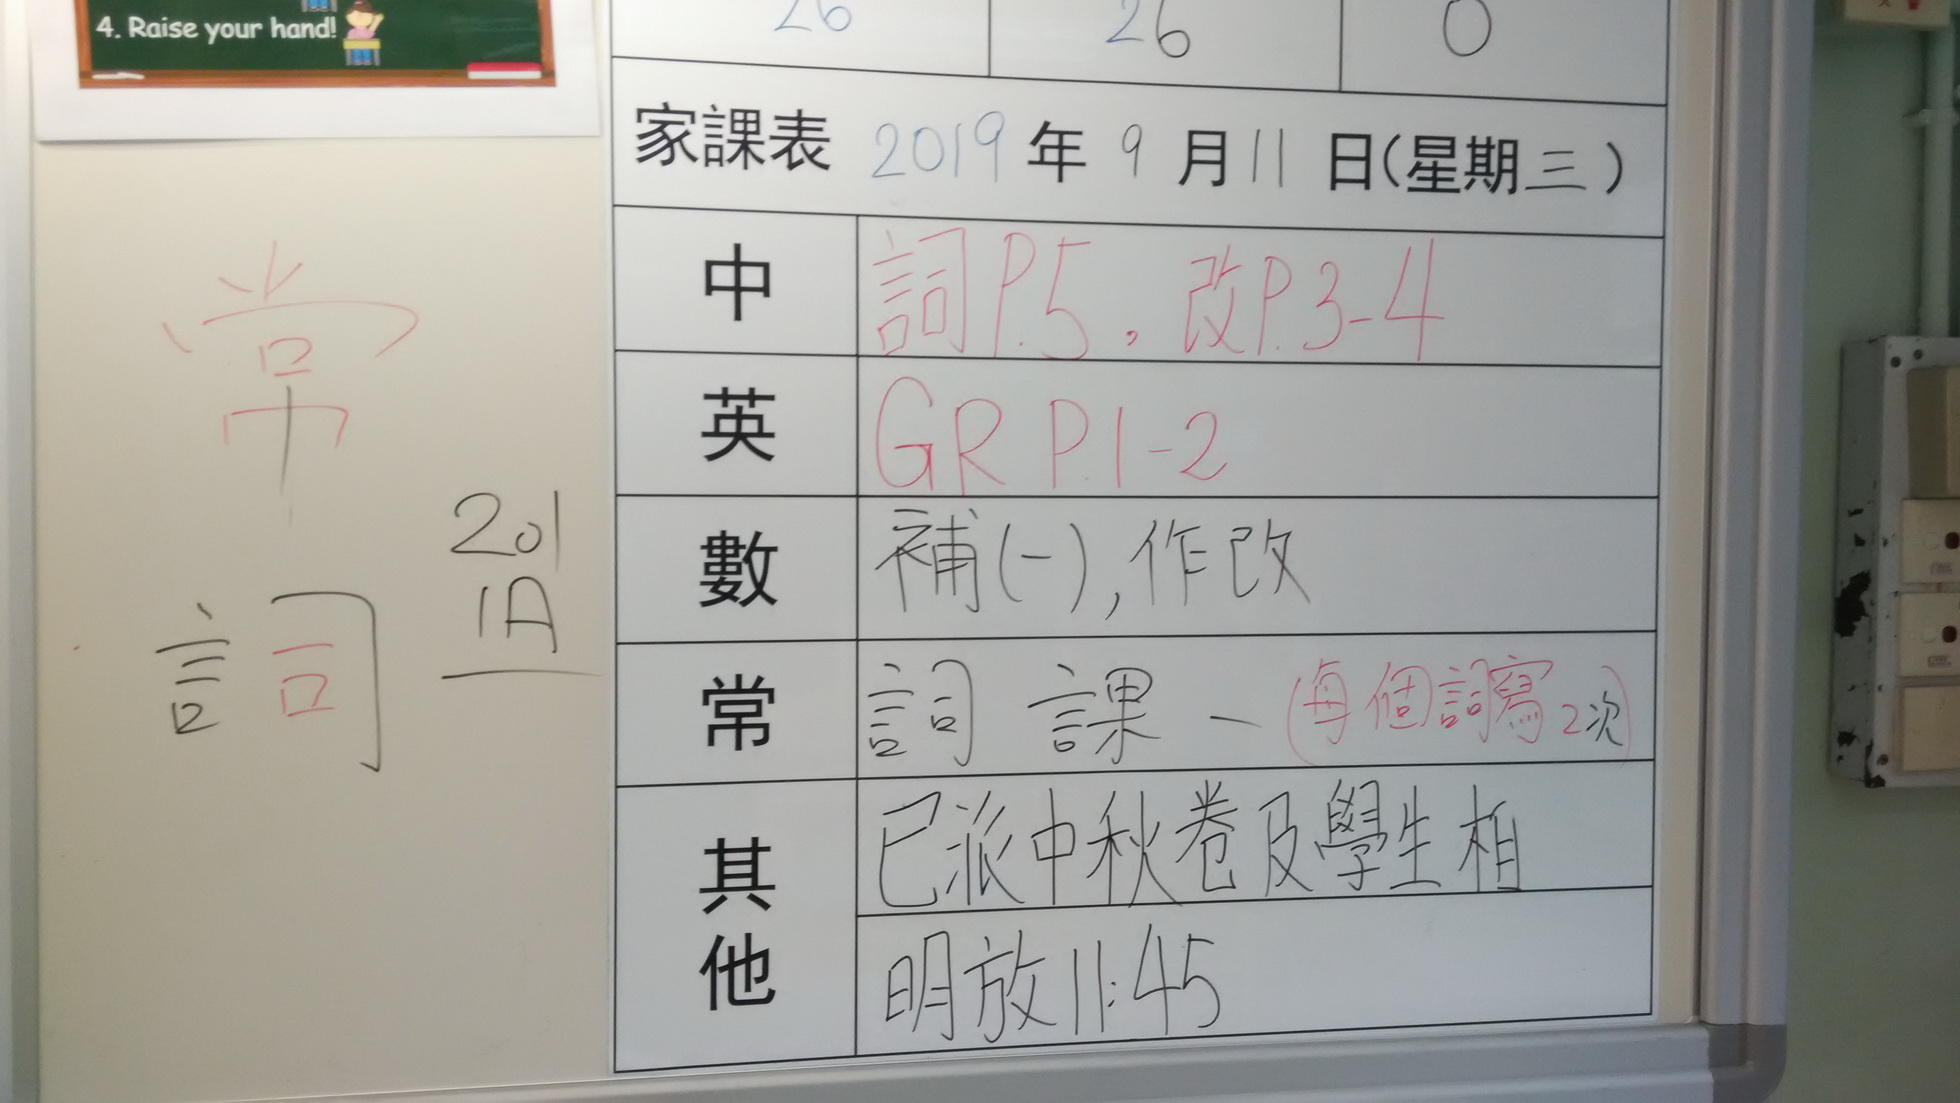 4. Raise your hand!
26 26 0
家課表 2019年9月11日(星期三)
中 詞P.5。改P.3-4
英 GR P.1-2
數 補(一),作改
常 詞 課一(每個詞寫2次)
其他 已派中秋卷及學生相
明放11:45
常
詞
201
1A